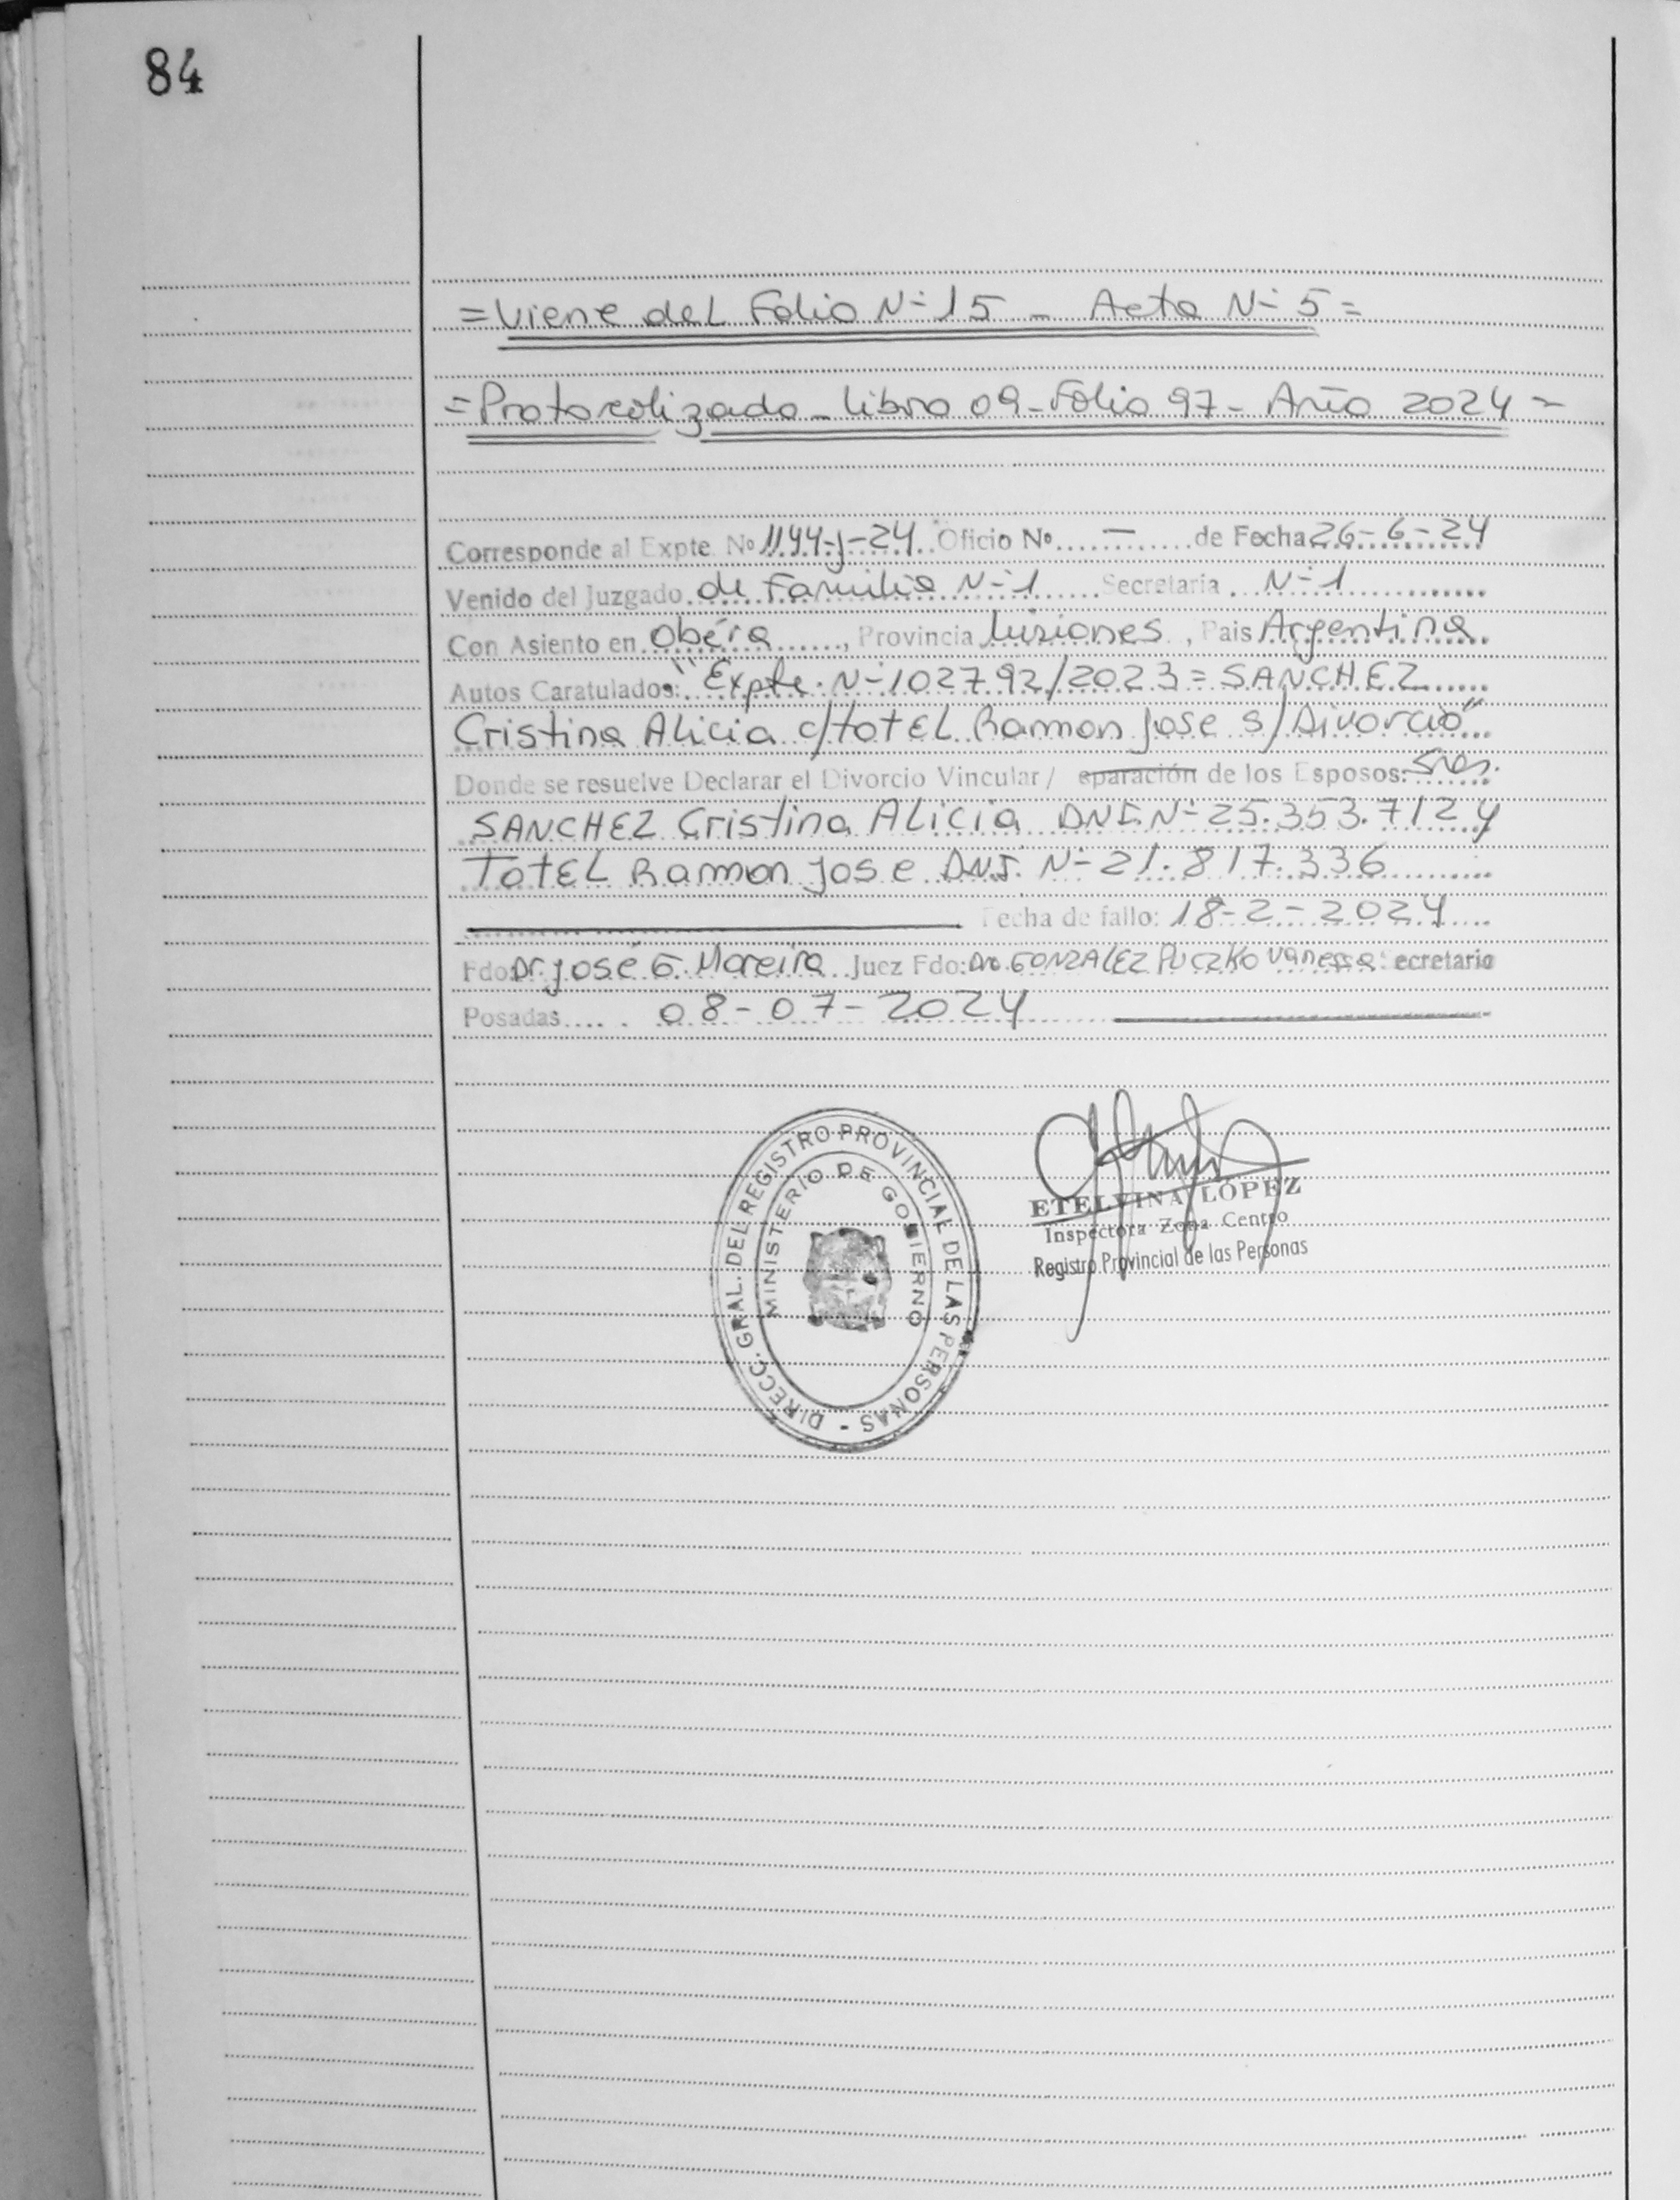 84
= Viene del Folio N- 15 - Acta N- 5 =
= Protocolizado - Libro 09 - Folio 97 - Año 2024 =
Corresponde al Expte. Nº 1194-J-24 Oficio Nº — de Fecha 26-6-24
Venido del Juzgado de Familia N- 1 Secretaria N- 1
Con Asiento en Oberá, Provincia Misiones, Pais Argentina
Autos Caratulados: "Expte. N- 102792/2023 = SANCHEZ
Cristina Alicia c/ TOTEL Ramon Jose s/ Divorcio"
Donde se resuelve Declarar el Divorcio Vincular / eparación de los Esposos: Sres.
SANCHEZ Cristina Alicia DNI. N- 25.353.712 y
TOTEL Ramon Jose DNI. N- 21.817.336
Fecha de fallo: 18-2-2024
Fdo: Dr. José G. Moreira Juez Fdo: Dra. GONZALEZ PUCZKO Vanessa Secretario
Posadas 08-07-2024
DIRECC. GRAL. DEL REGISTRO PROVINCIAL DE LAS PERSONAS -
MINISTERIO DE GOBIERNO
ETELVINA LOPEZ
Inspectora Zona Centro
Registro Provincial de las Personas